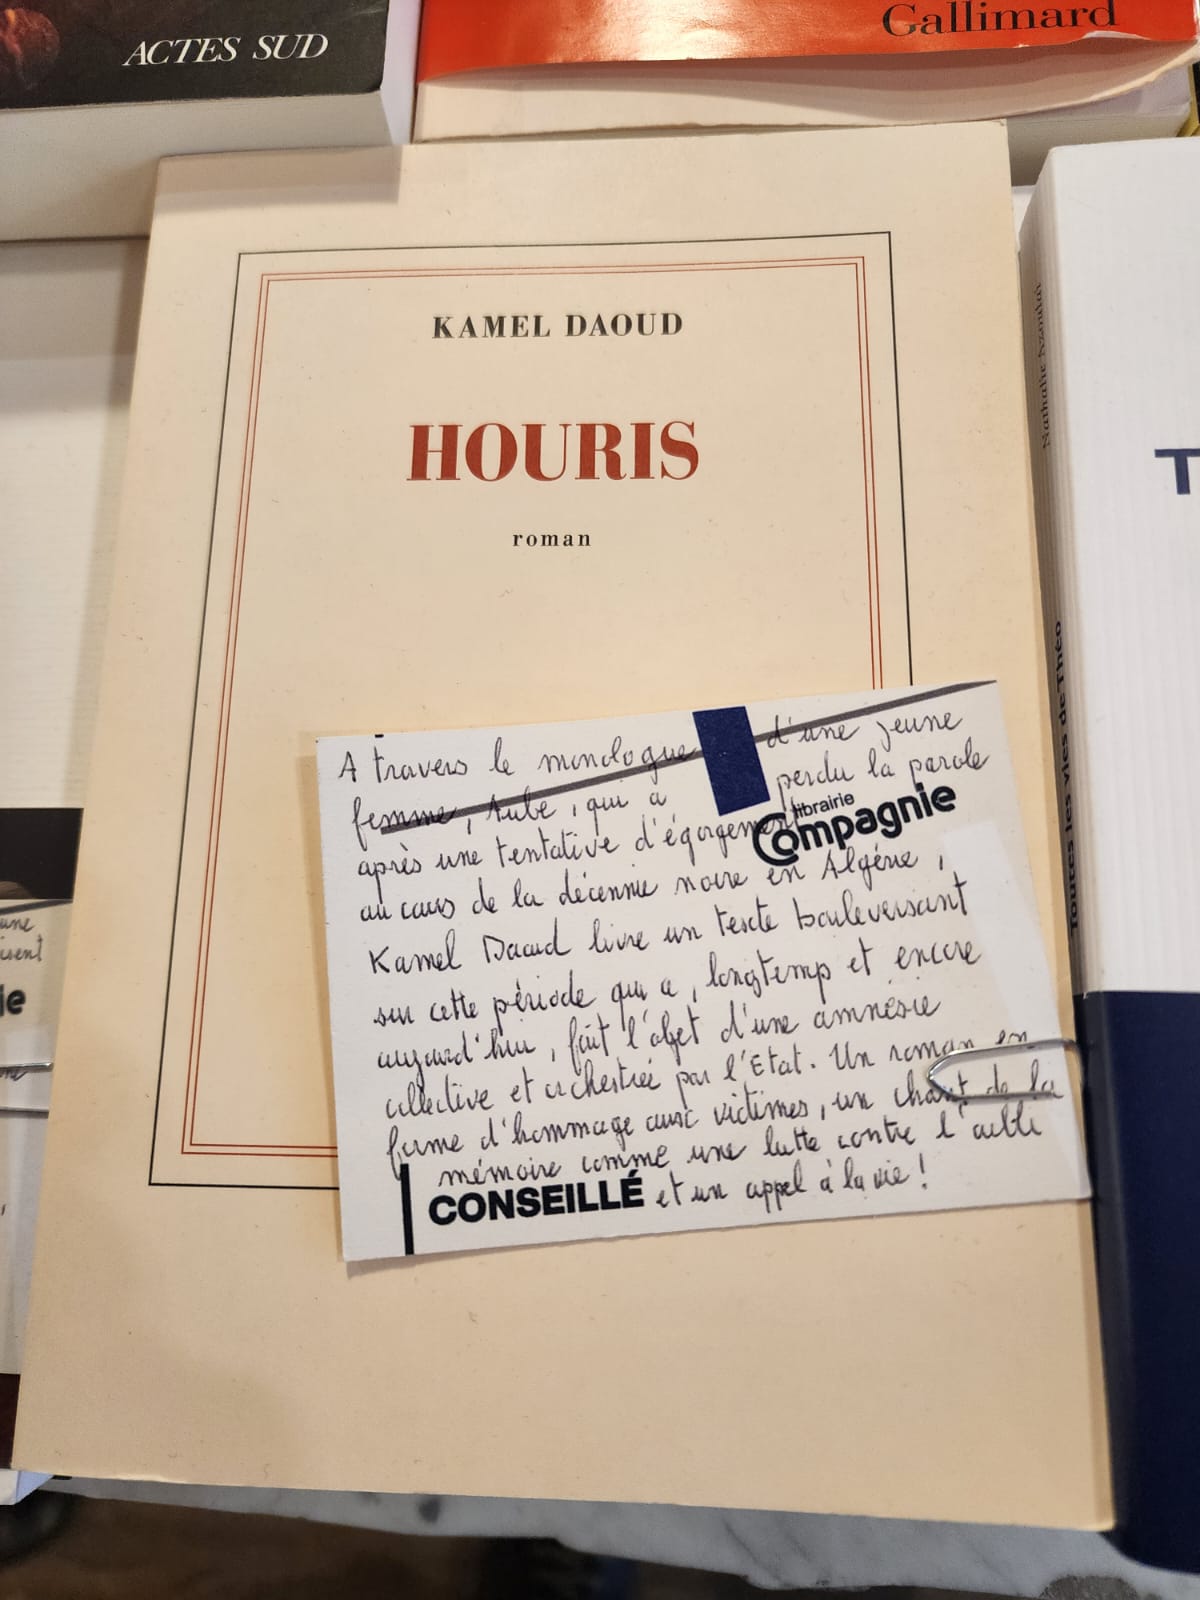 ACTES SUD
Gallimard
KAMEL DAOUD
HOURIS
roman
Nathalie Azoulai
Toutes les vies de Théo
T
A travers le monologue d'une jeune
femme, Aube, qui a perdu la parole
après une tentative d'égorgement
librairie
Compagnie
au cours de la décennie noire en Algérie,
Kamel Daoud livre un texte bouleversant
sur cette période qui a, longtemp et encore
aujourd'hui, fait l'objet d'une amnésie
collective et orchestrée par l'Etat. Un roman en
forme d'hommage aux victimes, un chant de la
mémoire comme une lutte contre l'oubli
CONSEILLÉ et un appel à la vie !
une
ie